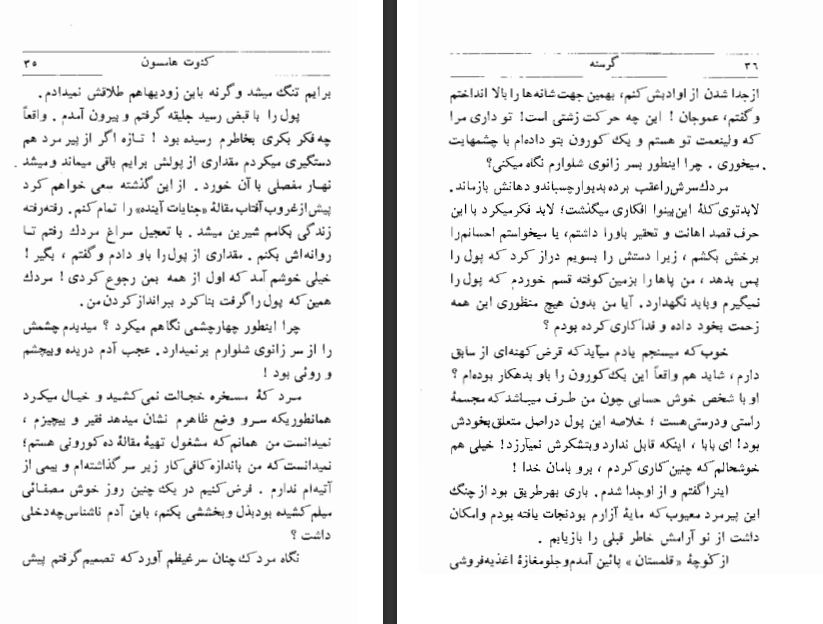 کنوت هامسون ۳۵
برایم تنگ میشد وگرنه باین زودیهاهم طلاقش نمیدادم.
پول را با قبض رسید جلیقه گرفتم و بیرون آمدم. واقعاً
چه فکر بکری بخاطرم رسیده بود! تازه اگر از پیر مرد هم
دستگیری میکردم مقداری از پولش برایم باقی میماند و میشد
نهار مفصلی با آن خورد. از این گذشته سعی خواهم کرد
پیش از غروب آفتاب مقالهٔ «جنایات آینده» را تمام کنم. رفته‌رفته
زندگی بکامم شیرین میشد. با تعجیل سراغ مردك رفتم تا
روانه‌اش بکنم. مقداری از پول را باو دادم و گفتم، بگیر!
خیلی خوشم آمد که اول از همه بمن رجوع کردی! مردك
همین که پول را گرفت بنا کرد ببرانداز کردن من.
چرا اینطور چهارچشمی نگاهم میکرد؟ میدیدم چشمش
را از سر زانوی شلوارم برنمیدارد. عجب آدم دریده وبیچشم
و روئی بود!
مرد کهٔ مسخره خجالت نمی‌کشید و خیال میکرد
همانطوریکه سرو وضع ظاهرم نشان میدهد فقیر و بیچیزم،
نمیدانست من همانم که مشغول تهیهٔ مقالهٔ ده کورونی هستم؛
نمیدانست که من باندازه کافی کار زیر سر گذاشته‌ام و بیمی از
آتیه‌ام ندارم. فرض کنیم در یك چنین روز خوش مصفائی
میلم کشیده بود بذل و بخششی بکنم، باین آدم ناشناس چه دخلی
داشت؟
نگاه مردك چنان سرغیظم آورد که تصمیم گرفتم پیش
گرسنه ۳۶
ازجدا شدن از اوادبش کنم، بهمین جهت شانه‌ها را بالا انداختم
وگفتم، عموجان! این چه حرکت زشتی است! تو داری مرا
که ولینعمت تو هستم و یك کورون بتو داده‌ام با چشمهایت
میخوری. چرا اینطور بسر زانوی شلوارم نگاه میکنی؟
مردك سرش راعقب برده بدیوار چسباند و دهانش بازماند.
لابدتوی کلهٔ این بینوا افکاری میگذشت؛ لابد فکر میکرد با این
حرف قصد اهانت و تحقیر باورا داشتم، یا میخواستم احسانم را
برخش بکشم، زیرا دستش را بسویم دراز کرد که پول را
پس بدهد، من پاها را بزمین کوفته قسم خوردم که پول را
نمیگیرم و باید نگهدارد. آیا من بدون هیچ منظوری این همه
زحمت بخود داده و فداکاری کرده بودم؟
خوب که میسنجم یادم میآید که قرض کهنه‌ای از سابق
دارم، شاید هم واقعاً این یك کورون را باو بدهکار بوده‌ام؟
او با شخص خوش حسابی چون من طرف میباشد که مجسمهٔ
راستی ودرستی هست؛ خلاصه این پول دراصل متعلق بخودش
بود! ای بابا، اینکه قابل ندارد وبتشکرش نمیآرزد! خیلی هم
خوشحالم که چنین کاری کردم، برو بامان خدا!
اینرا گفتم و از اوجدا شدم. باری بهرطریق بود از چنگ
این پیرمرد معیوب که مایهٔ آزارم بودنجات یافته بودم وامکان
داشت از نو آرامش خاطر قبلی را بازیابم.
از کوچهٔ «قلمستان» پائین آمدم و جلومغازهٔ اغذیه‌فروشی